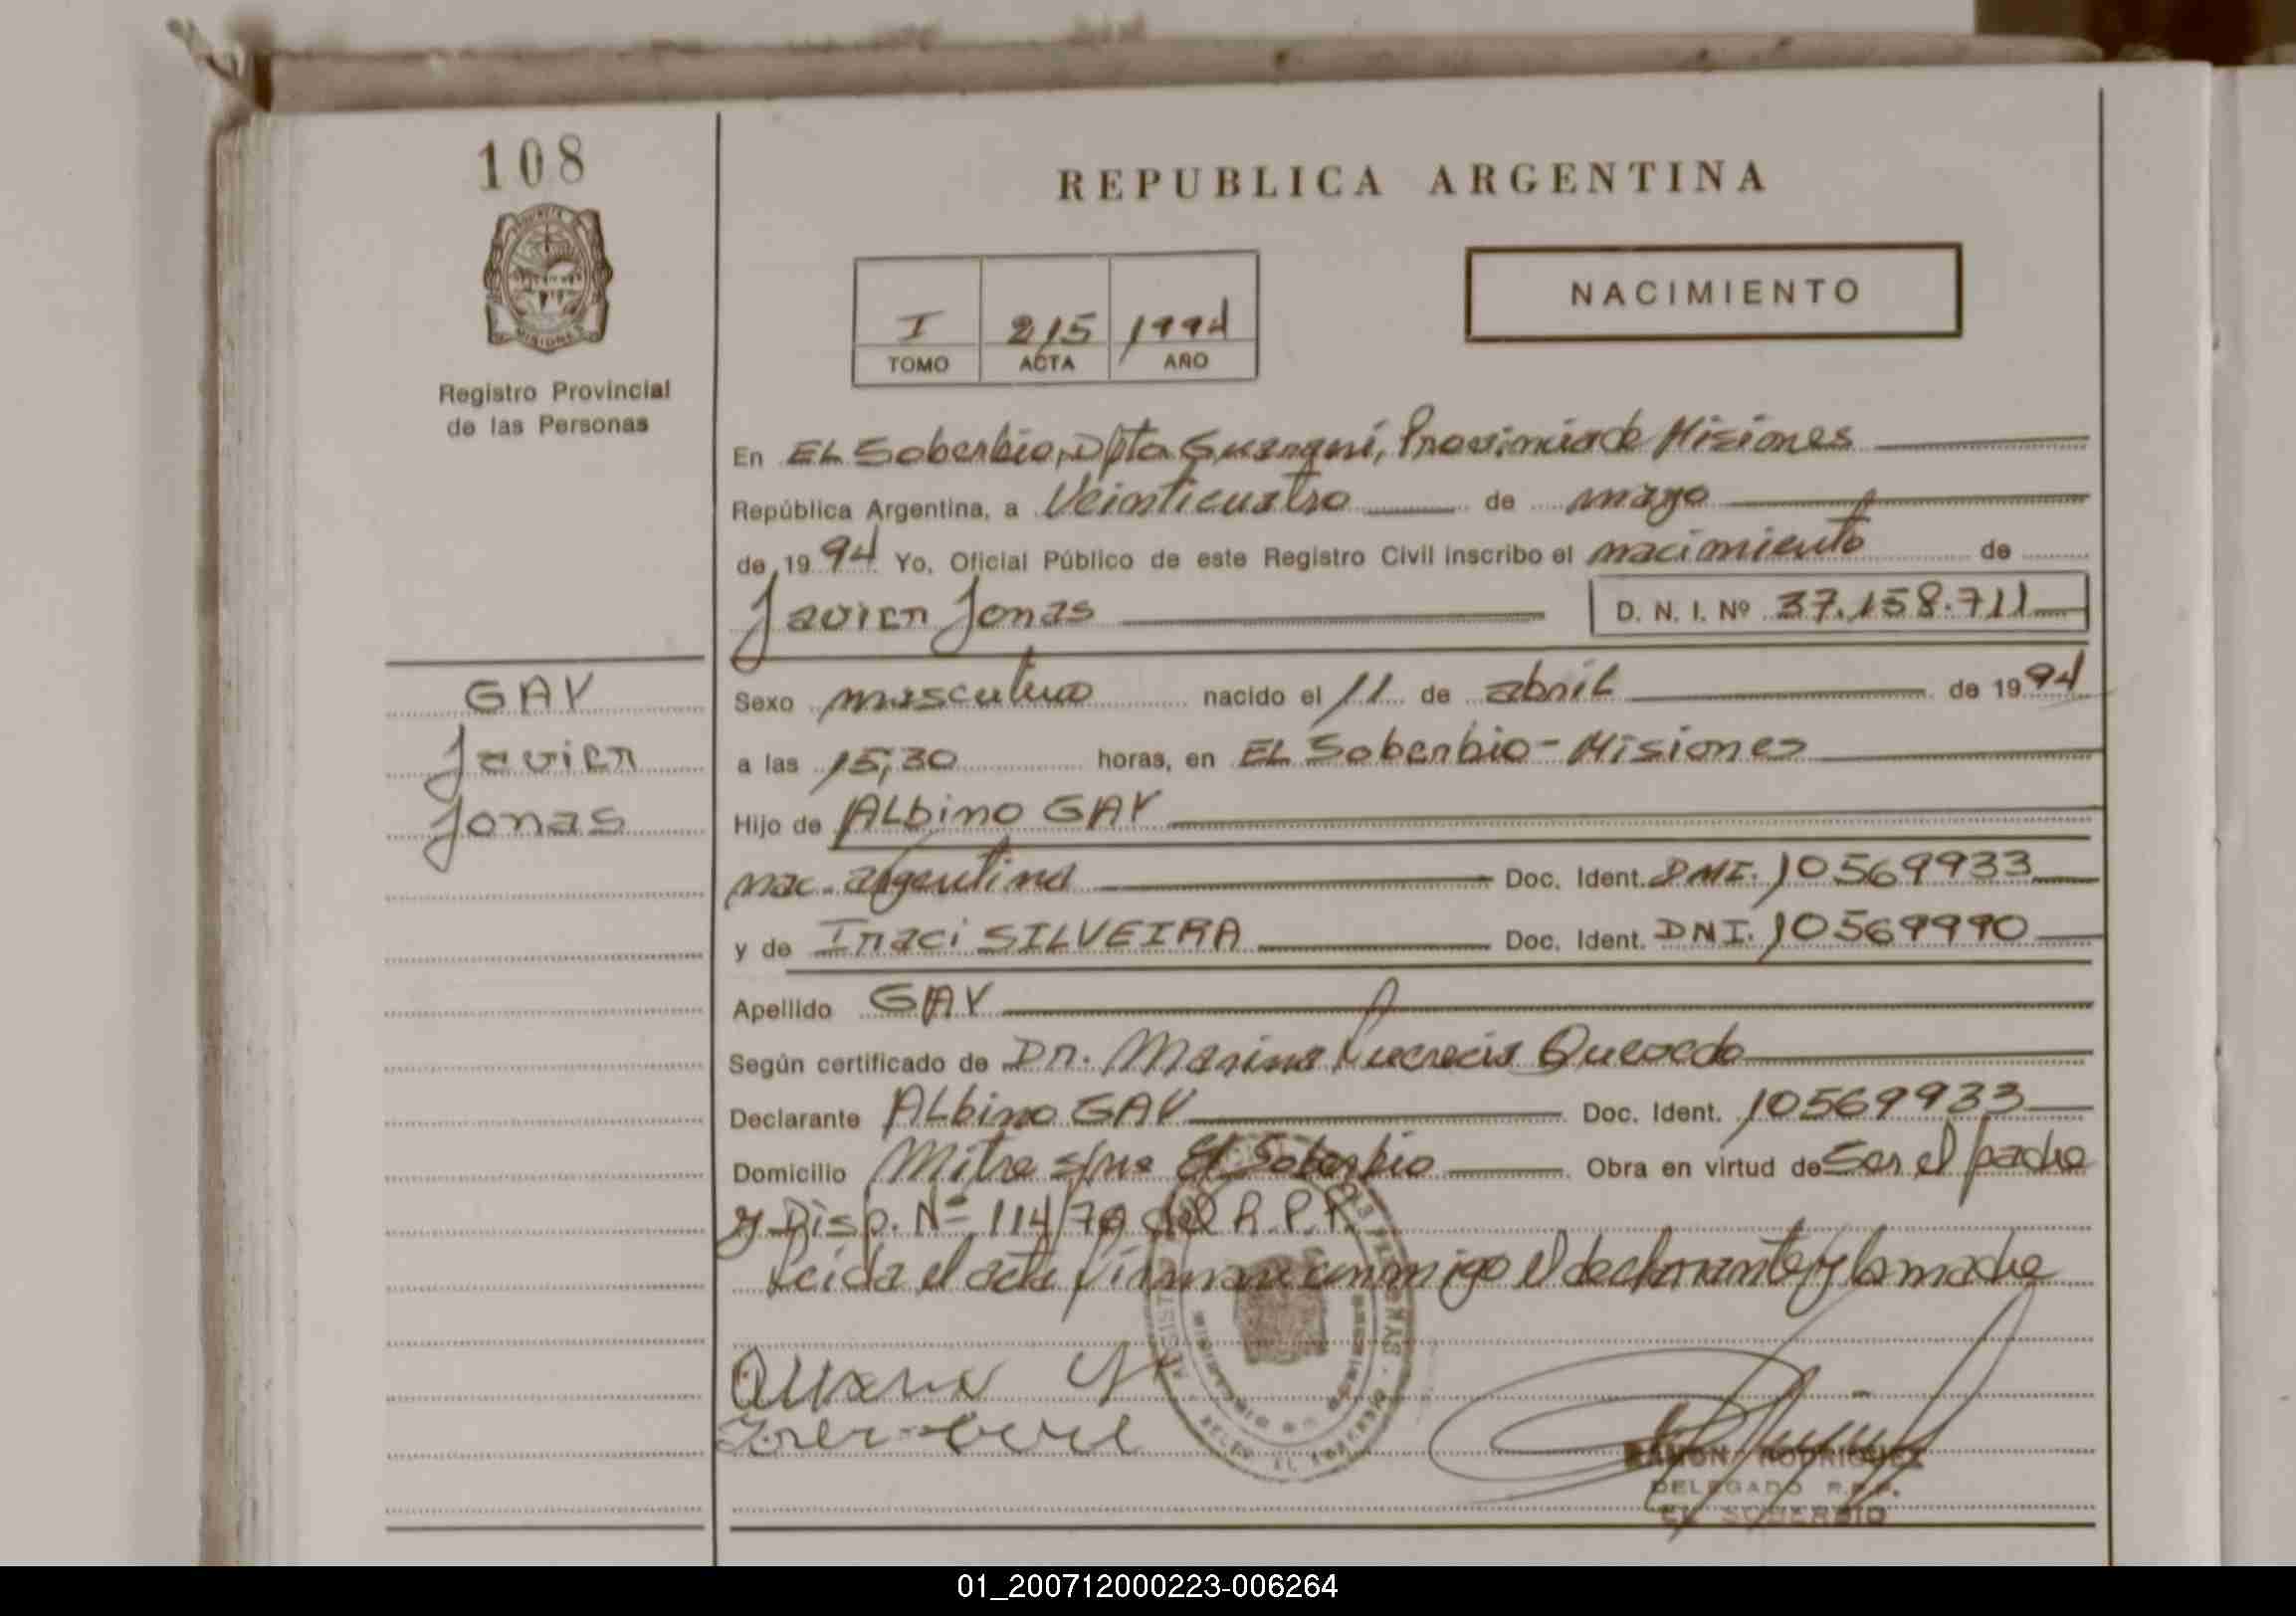 108
REPUBLICA ARGENTINA
NACIMIENTO
I 215 1994
TOMO ACTA AÑO
Registro Provincial
de las Personas
En EL Soberbio, Dpto Guaraní, Provincia de Misiones
República Argentina, a Veinticuatro de mayo
de 1994 Yo, Oficial Público de este Registro Civil inscribo el nacimiento de
Javier Jonas D. N. I. Nº 37.158.711
GAY
Javier
Jonas
Sexo masculino nacido el 11 de abril de 1994
a las 15,30 horas, en EL Soberbio - Misiones
Hijo de Albino GAY
nac. argentina Doc. Ident. DNI. 10569933
y de Iraci SILVEIRA Doc. Ident. DNI. 10569990
Apellido GAY
Según certificado de Dr. Marina Lucrecia Quevedo
Declarante Albino GAY Doc. Ident. 10569933
Domicilio Mitre s/nº El Soberbio Obra en virtud de Ser el padre
y Disp. Nº 114/70 del R.P.P.
Leida el acta firman conmigo el declarante y la madre
RAMON RODRIGUEZ
DELEGADO R.P.P.
EL SOBERBIO
01_200712000223-006264